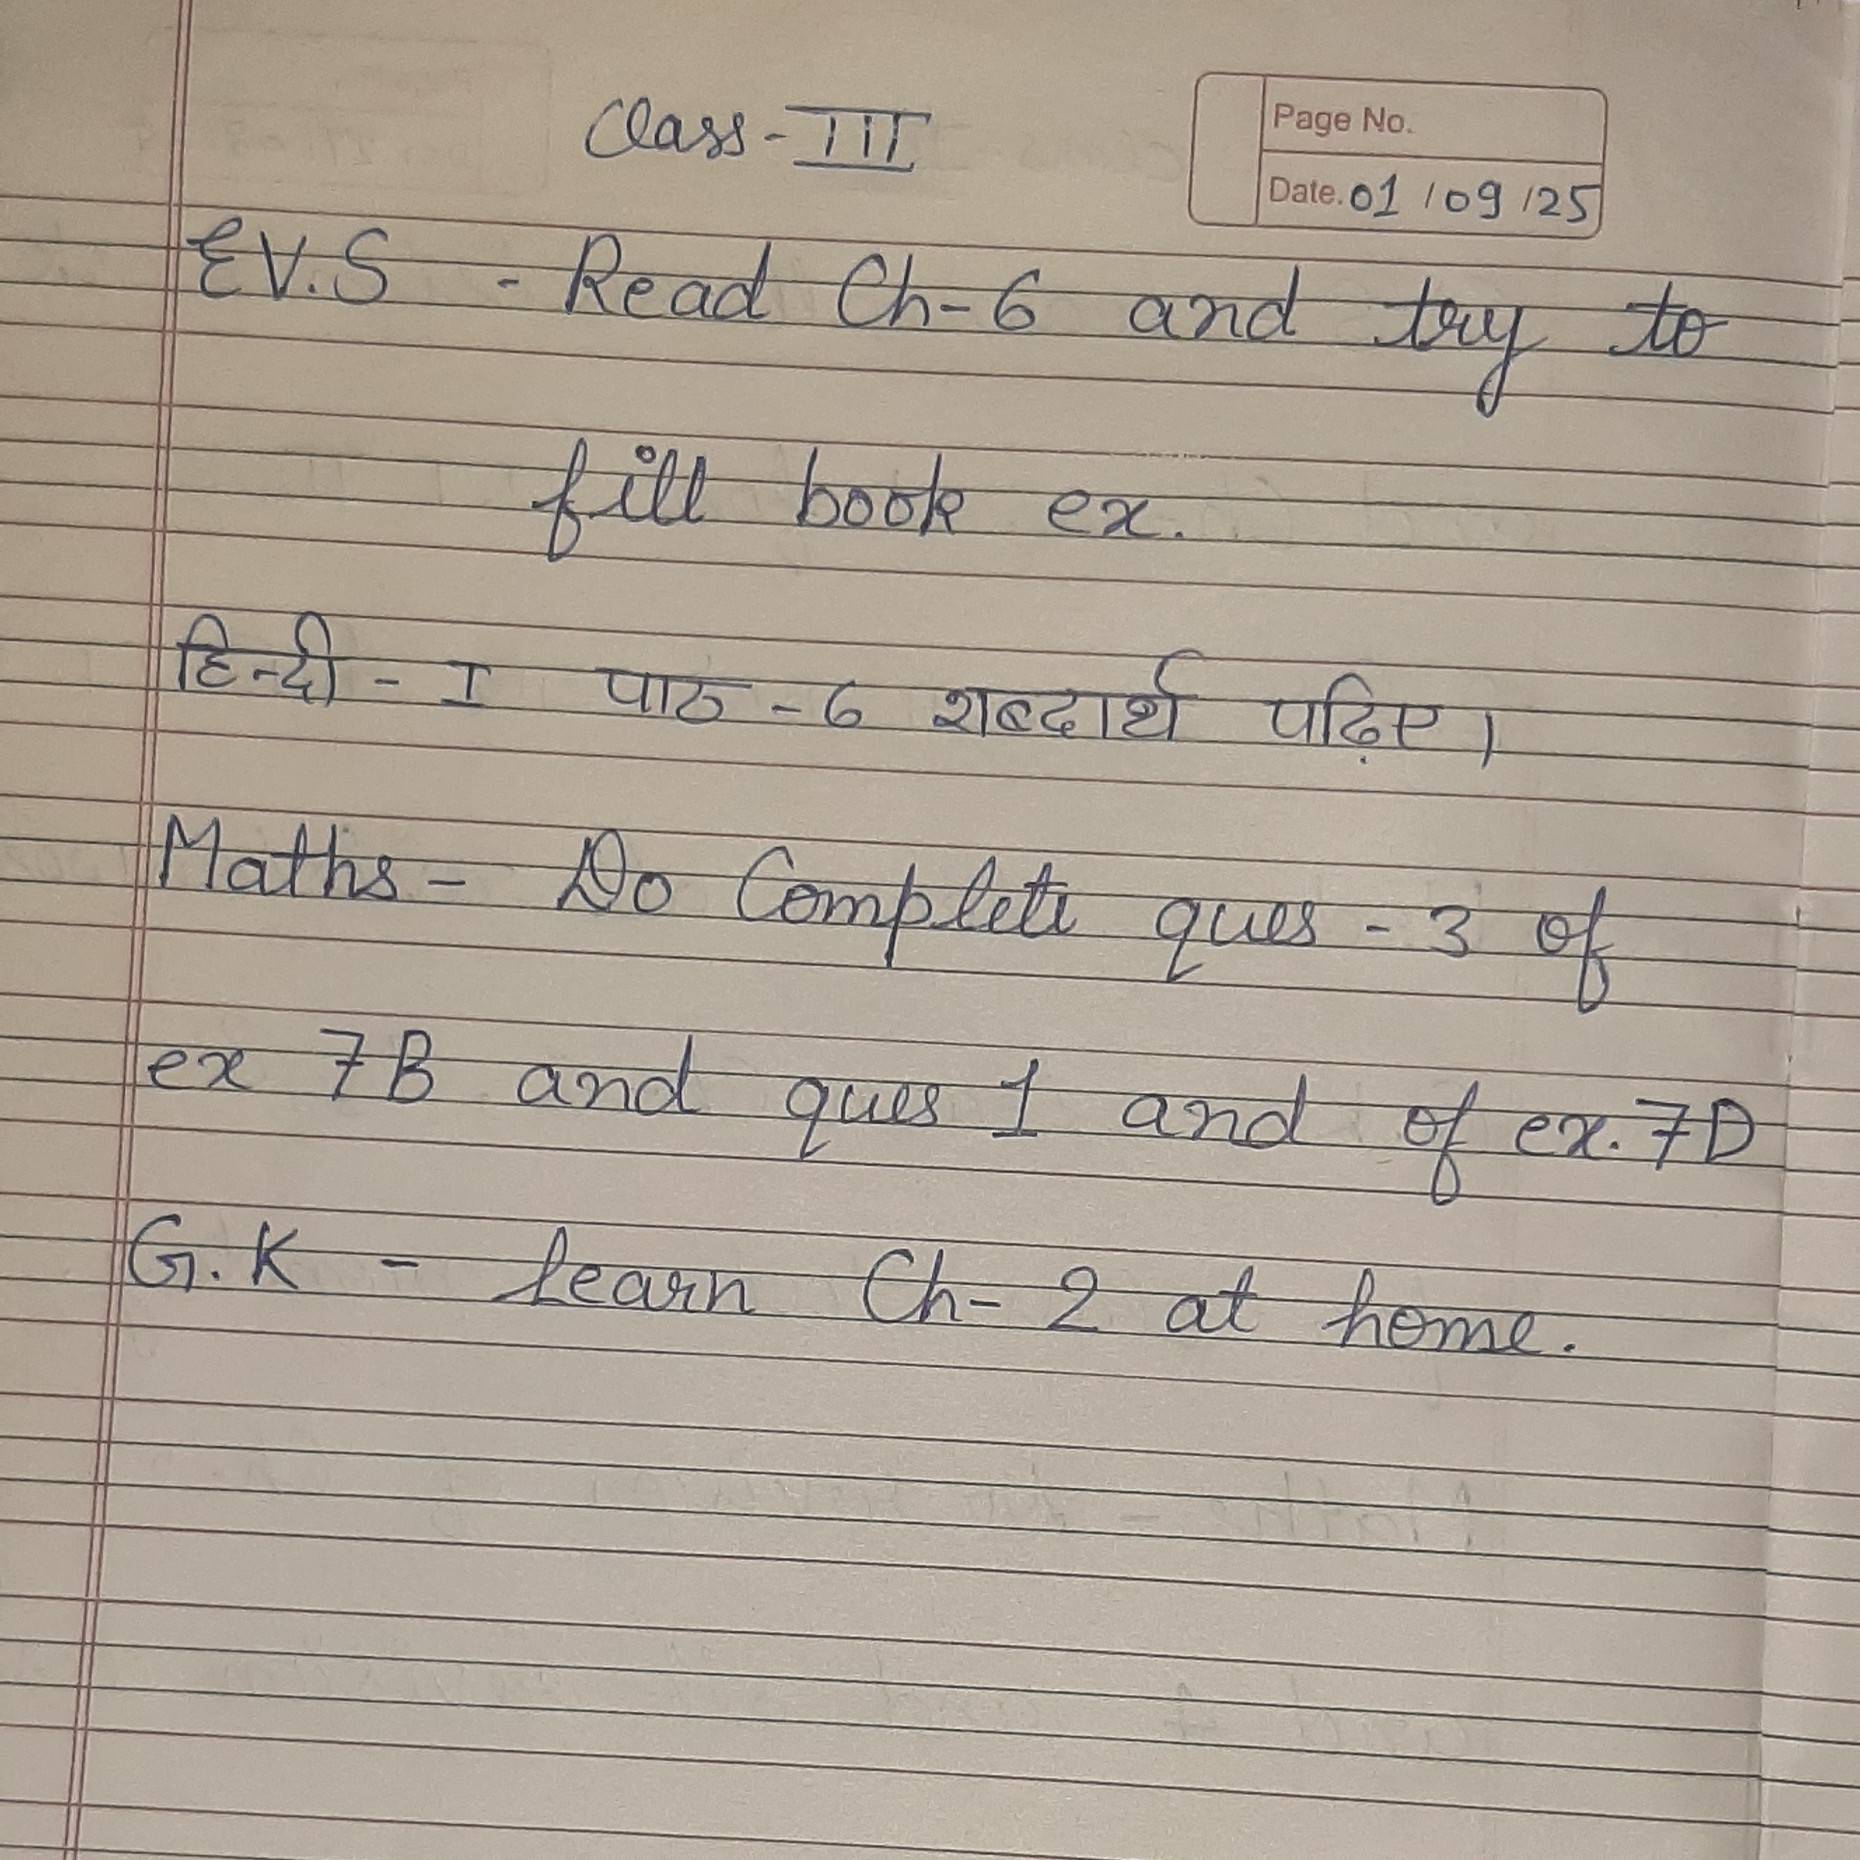 Class-III
Page No.
Date. 01/09/25
EV.S - Read Ch-6 and try to
fill book ex.
हिन्दी - I पाठ - 6 शब्दार्थ पढ़िए।
Maths - Do Complete ques - 3 of
ex 7B and ques 1 and of ex. 7D
G.K - learn Ch- 2 at home.